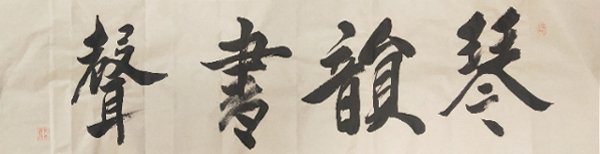 琴韻書聲